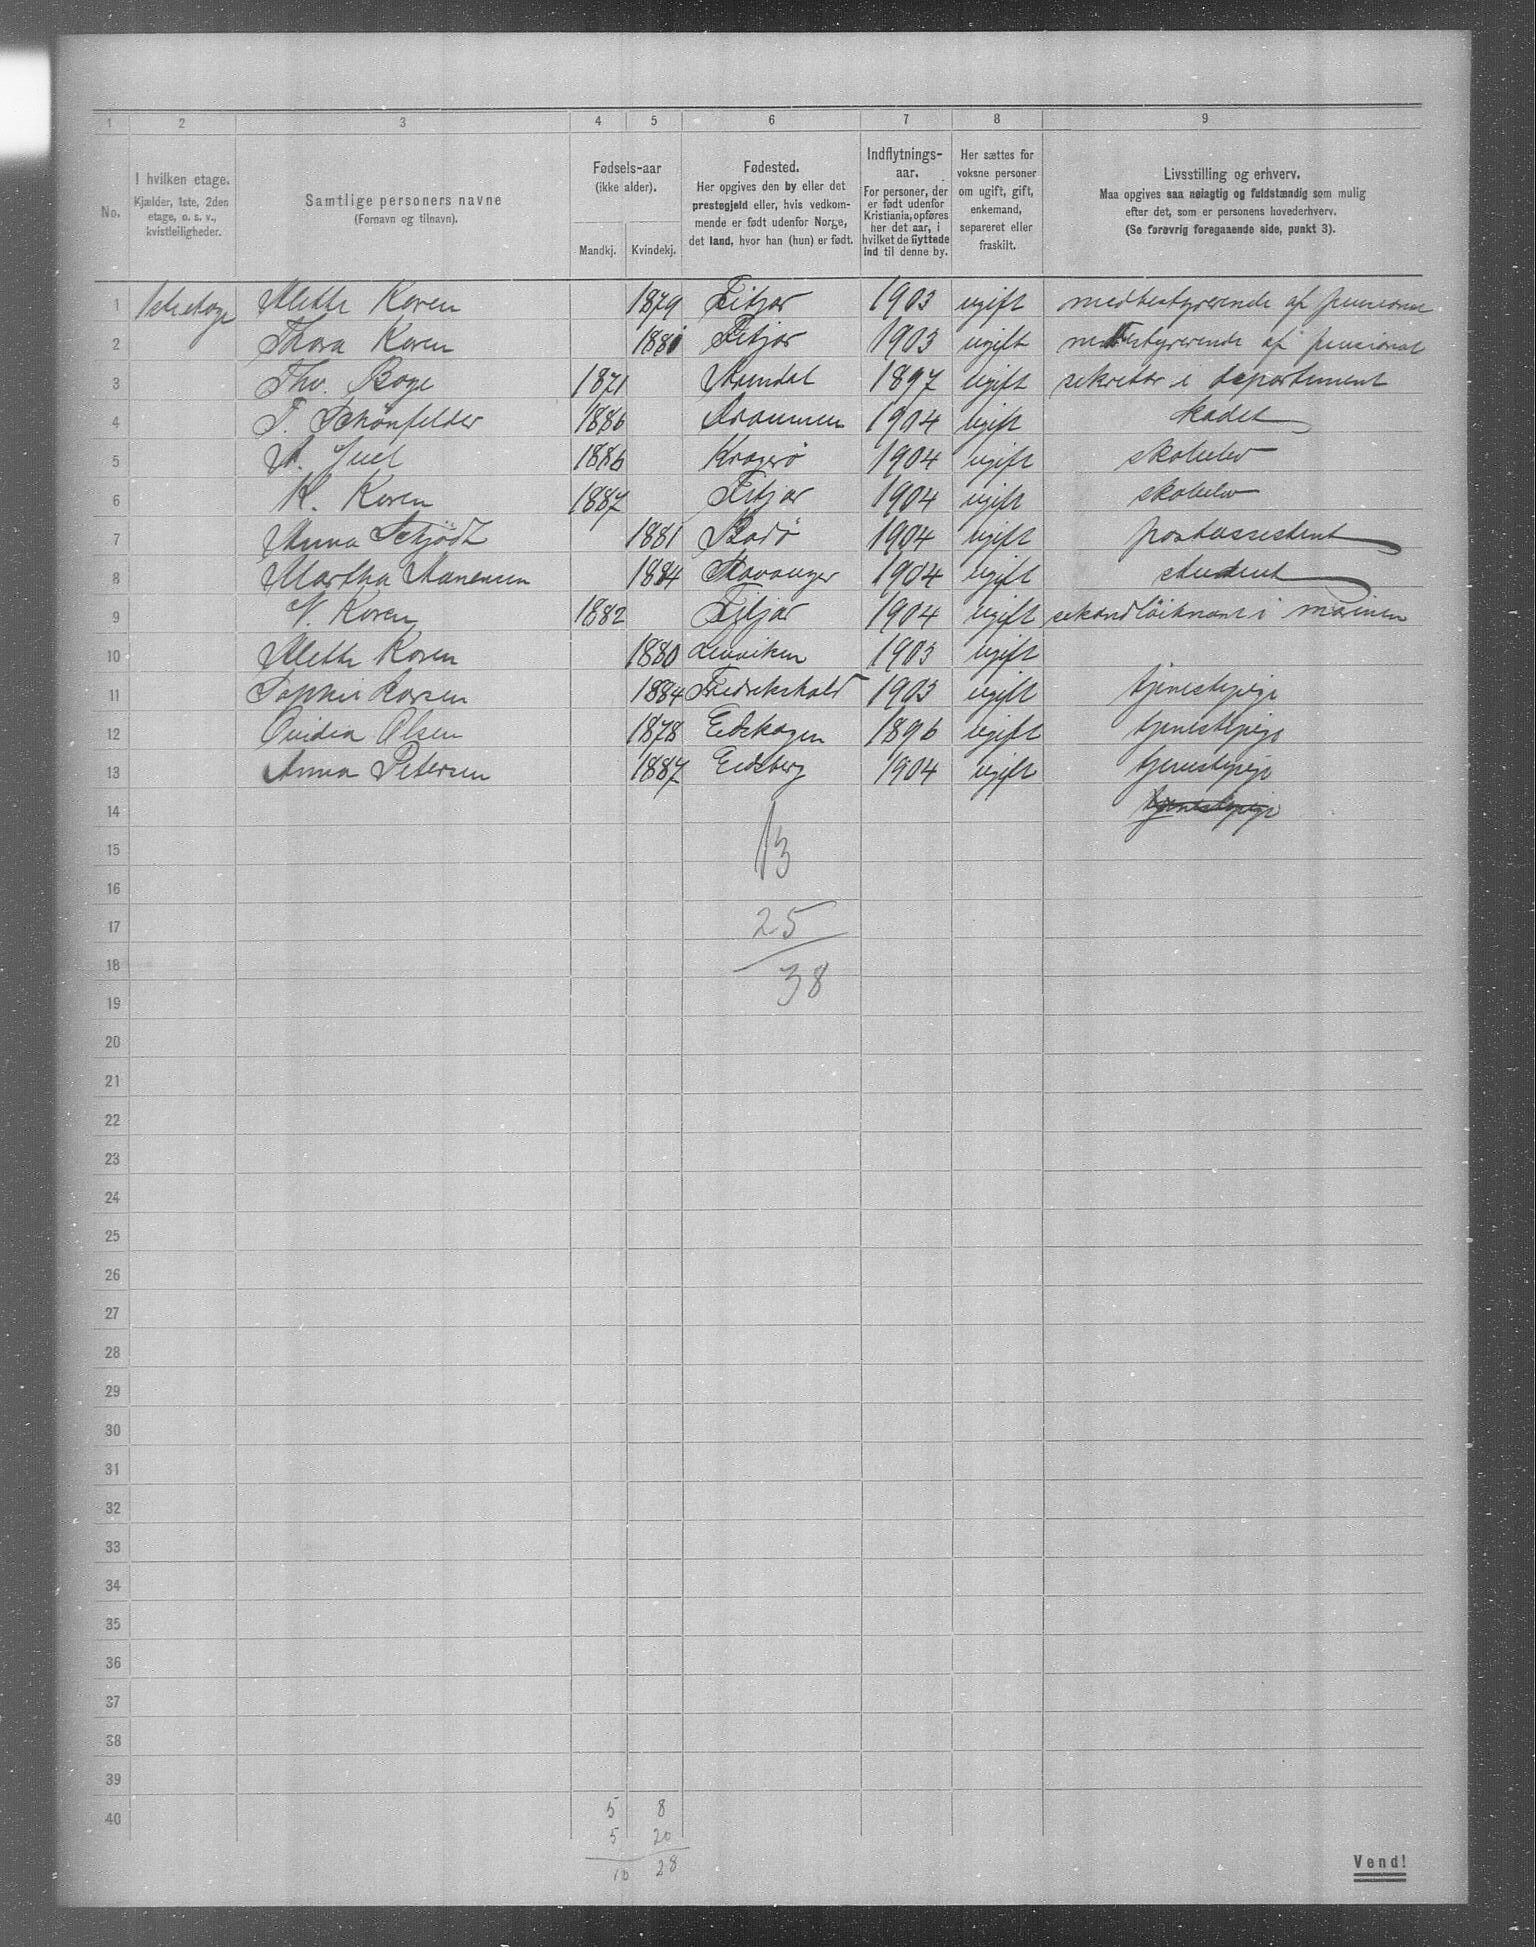 1 2 3 4 5 6 7 8 9
No.
I hvilken etage.
Kjælder, 1ste, 2den
etage, o. s. v.,
kvistleiligheder.
Samtlige personers navne
(Fornavn og tilnavn).
Fødsels-aar
(ikke alder).
Mandkj. Kvindekj.
Fødested.
Her opgives den by eller det
prestegjeld eller, hvis vedkom-
mende er født udenfor Norge,
det land, hvor han (hun) er født.
Indflytnings-
aar.
For personer, der
er født udenfor
Kristiania, opføres
her det aar, i
hvilket de flyttede
ind til denne by.
Her sættes for
voksne personer
om ugift, gift,
enkemand,
separeret eller
fraskilt.
Livsstilling og erhverv.
Maa opgives saa nøiagtig og fuldstændig som mulig
efter det, som er personens hovederhverv.
(Se forøvrig foregaaende side, punkt 3).
1 1ste etage Alette Koren 1879 Fitjar 1903 ugift medbestyrerende af pensionat
2 Thora Koren 1881 Fitjar 1903 ugift medbestyrerende af pensionat
3 Thv. Boge 1871 Arendal 1897 ugift sekretær i departement
4 T. Schönfelder 1886 Drammen 1904 ugift kadet
5 A. Juel 1886 Kragerø 1904 ugift skoleelev
6 K. Koren 1887 Fitjar 1904 ugift skoleelev
7 Anna Schjödt 1881 Bodø 1904 ugift postassistent
8 Martha 1884 Stavanger 1904 ugift student
9 N. Koren 1882 Fitjar 1904 ugift sekondløitnant i marinen
10 Alette Koren 1880 Lenviken 1903 ugift
11 Sophie Larsen 1884 Fredrikshald 1903 ugift tjenestepige
12 Ovidia Olsen 1878 Edskogen 1896 ugift tjenestepige
13 Anna Petersen 1887 Eidsberg 1904 ugift tjenestepige
14 tjenestepige
15 13
16
17 25
18
19 38
20
21
22
23
24
25
26
27
28
29
30
31
32
33
34
35
36
37
38
39
40 5 8
5 20
10 28
Vend!